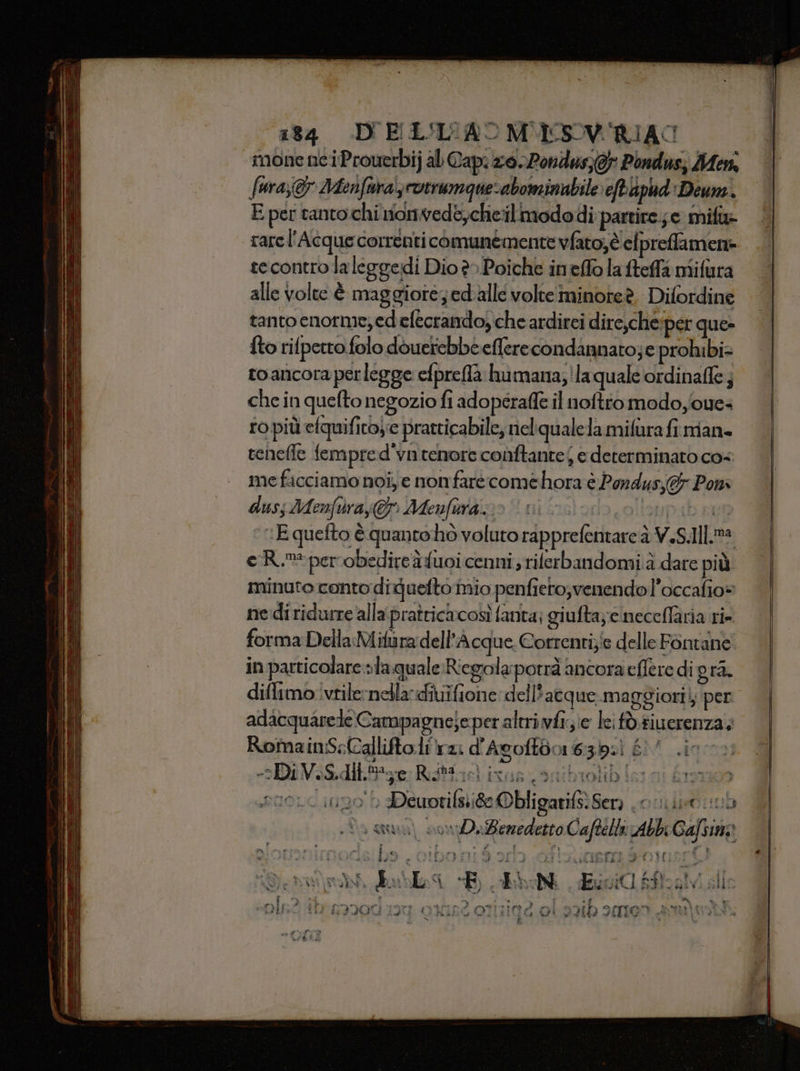 184 DELLA MISVRA
mone ne i Prouerbij al Cap: 20. Pondus, & Pondus, Men,
ſura, & Menſura, vtrumque abominabile eſt apud Deum.
E per tanto chi non vede, che il modo di partire, e miſu-
rare l'Acque correnti comunemente vſato, è eſpreſſamen-
te contro la legge di Dio? Poiche in eſſo la ſteſſa miſura
alle volte è maggiore, ed alle volte minore? Diſordine
tanto enorme, ed eſecrando, che ardirei dire, che per que-
ſto riſpetto ſolo douerebbe eſſere condannato, e prohibi-
to ancora per legge eſpreſſa humana, la quale ordinaſſe;
che in queſto negozio ſi adoperaſſe il noſtro modo, oue-
ro più eſquiſito, e pratticabile, nel quale la miſura ſi man-
teneſſe ſempre d'vn tenore conſtante, e determinato co-
me facciamo noi, e non fare come hora è Pondus, & Pon-
dus; Menſura, & Menſura.
E queſto è quanto hò voluto rappreſentare à V.S.Ill.ma
e R.ma per obedire à ſuoi cenni, riſerbandomi à dare più
minuto conto di queſto mio penſiero, venendo l'occaſio-
ne di ridurre alla prattica così ſanta, giuſta, e neceſſaria ri-
forma Della Miſura dell'Acque Correnti, e delle Fontane
in particolare: la quale Regola potrà ancora eſſere di grā-
diſſimo vtile nella diuiſione dell'acque maggiori, per
adacquare le Campagne, e per altri vſi, e le fò riuerenza.
Roma in S. Calliſto li 12. d'Agoſto 1639.
Di V.S.Ill.ma e R.ma
Deuotiſs. & Obligatiſs. Ser.
D. Benedetto Caſtelli Abb. Caſsin.